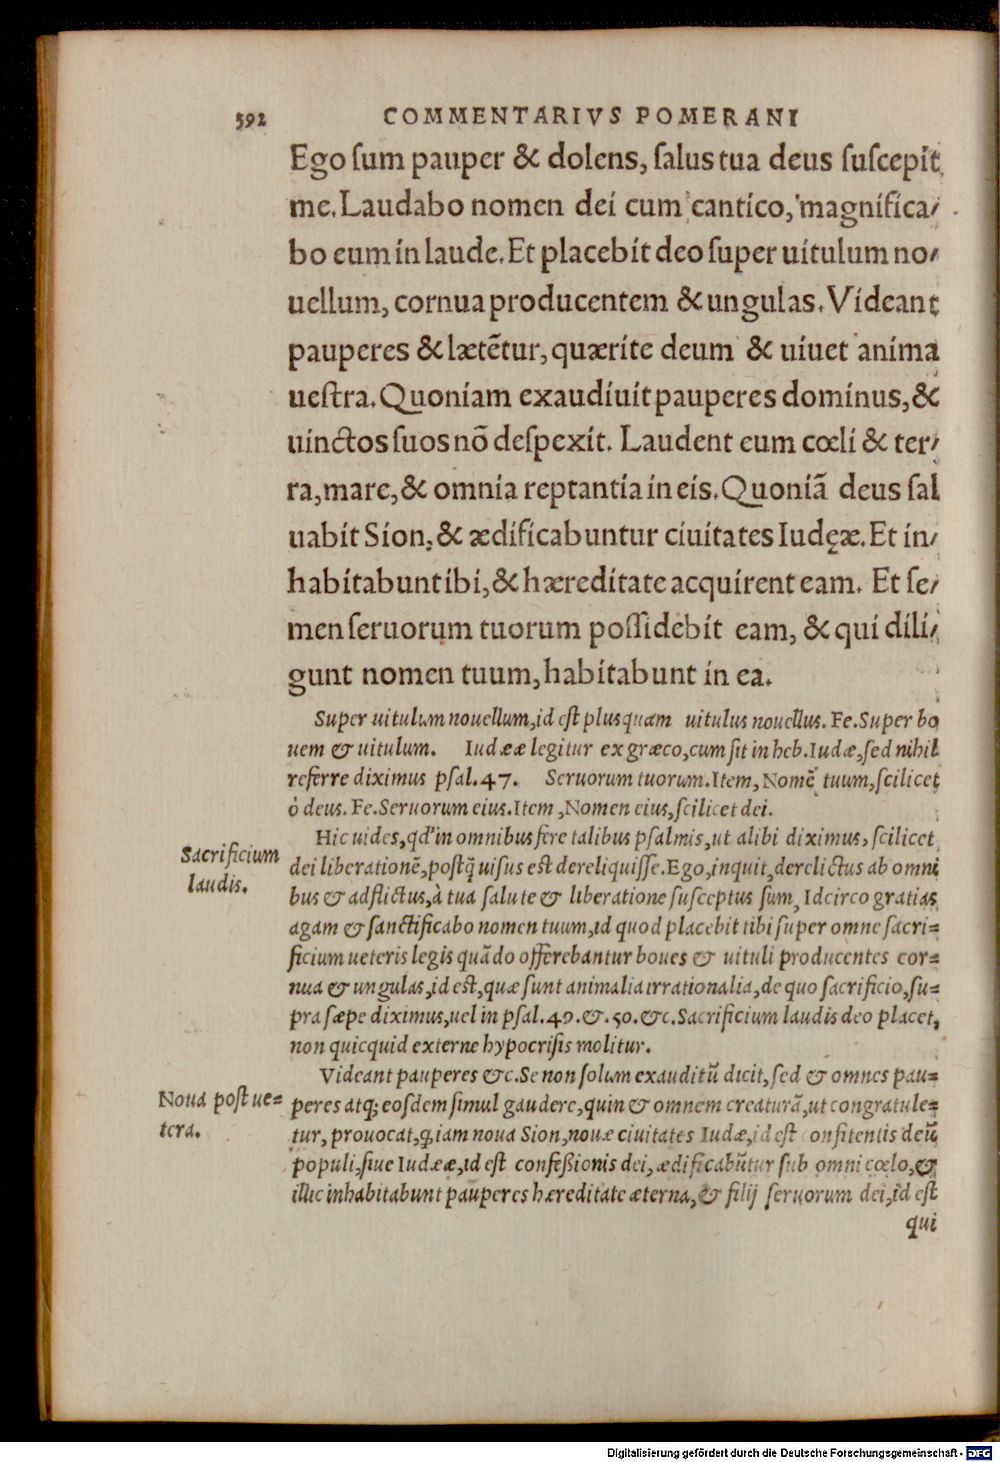 392 COMMENTARIVS POMERANI
Ego ſum pauper & dolens, ſalus tua deus ſuſcepit
me. Laudabo nomen dei cum cantico, magnifica/
bo eum in laude. Et placebit deo ſuper uitulum no/
uellum, cornua producentem & ungulas. Videant
pauperes & lætẽtur, quærite deum & uiuet anima
ueſtra. Quoniam exaudiuit pauperes dominus, &
uinctos ſuos nõ deſpexit. Laudent eum cœli & ter/
ra, mare, & omnia reptantia in eis. Quoniã deus ſal
uabit Sion, & ædificabuntur ciuitates Iudęæ. Et in/
habitabunt ibi, & hæreditate acquirent eam. Et ſe/
men ſeruorum tuorum poſſidebit eam, & qui dili/
gunt nomen tuum, habitabunt in ea.
Super uitulum nouellum, id eſt plus quam uitulus nouellus. Fe. Super bo
uem & uitulum. Iudææ legitur ex græco, cum ſit in heb. Iudæ, ſed nihil
referre diximus pſal. 47. Seruorum tuorum. Item, Nomẽ tuum, ſcilicet
ò deus. Fe. Seruorum eius. Item, Nomen eius, ſcilicet dei.
Hic uides, qd' in omnibus fere talibus pſalmis, ut alibi diximus, ſcilicet
Sacrificium
laudis.
dei liberationẽ, poſtq̃ uiſus eſt dereliquiſſe. Ego, inquit, derelictus ab omni
bus & adflictus, à tua ſalute & liberatione ſuſceptus ſum, Idcirco gratias
agam & ſanctificabo nomen tuum, id quod placebit tibi ſuper omne ſacri=
ficium ueteris legis quãdo offerebantur boues & uituli producentes cor=
nua & ungulas, id eſt, quæ ſunt animalia irrationalia, de quo ſacrificio, ſu=
pra ſæpe diximus, uel in pſal. 49. &. 50. &c. Sacrificium laudis deo placet,
non quicquid externe hypocriſis molitur.
Videant pauperes &c. Se non ſolum exauditũ dicit, ſed & omnes pau=
Noua poſt ue=
tera.
peres atq; eoſdem ſimul gaudere, quin & omnem creaturã, ut congratule=
tur, prouocat, ꝙ iam noua Sion, nouæ ciuitates Iudæ, id eſt confitentis deũ
populi, ſiue Iudææ, id eſt confeßionis dei, ædificabũtur ſub omni cœlo, &
illic inhabitabunt pauperes hæreditate æterna, & filij ſeruorum dei, id eſt
qui
Digitalisierung gefördert durch die Deutsche Forschungsgemeinschaft - DFG